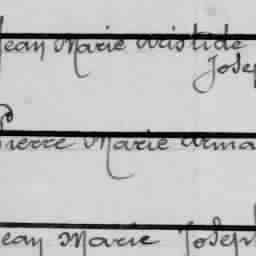 Jean Marie Aristide
Josep
Pierre Marie Arma
Jean Marie Joseph